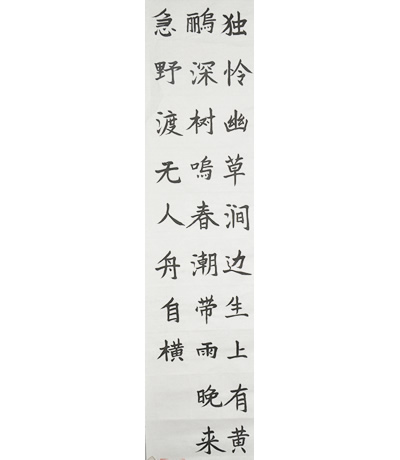 独怜幽草涧边生上有黄
鹂深树鸣春潮带雨晚来
急野渡无人舟自横